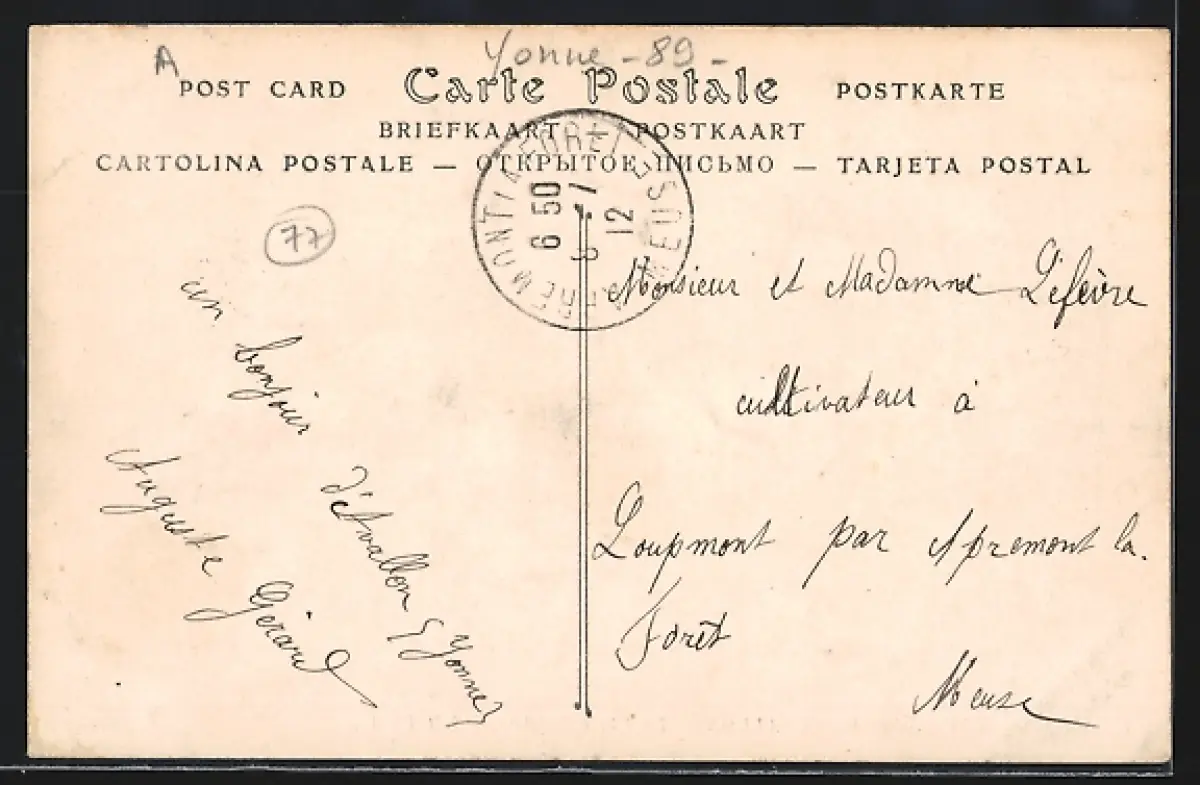 A
Yonne - 89 -
POST CARD Carte Postale POSTKARTE
BRIEFKAART — POSTKAART
CARTOLINA POSTALE — ОТКРЫТОЕ ПИСЬМО — TARJETA POSTAL
APREMONT-LA-FORET MEUSE
6 50
12
77
un bonjour d'Avallon (Yonne)
Auguste Gérard
Monsieur et Madamme Léfèvre
cultivateur à
Loupmont par Apremont la.
Forêt
Meuse